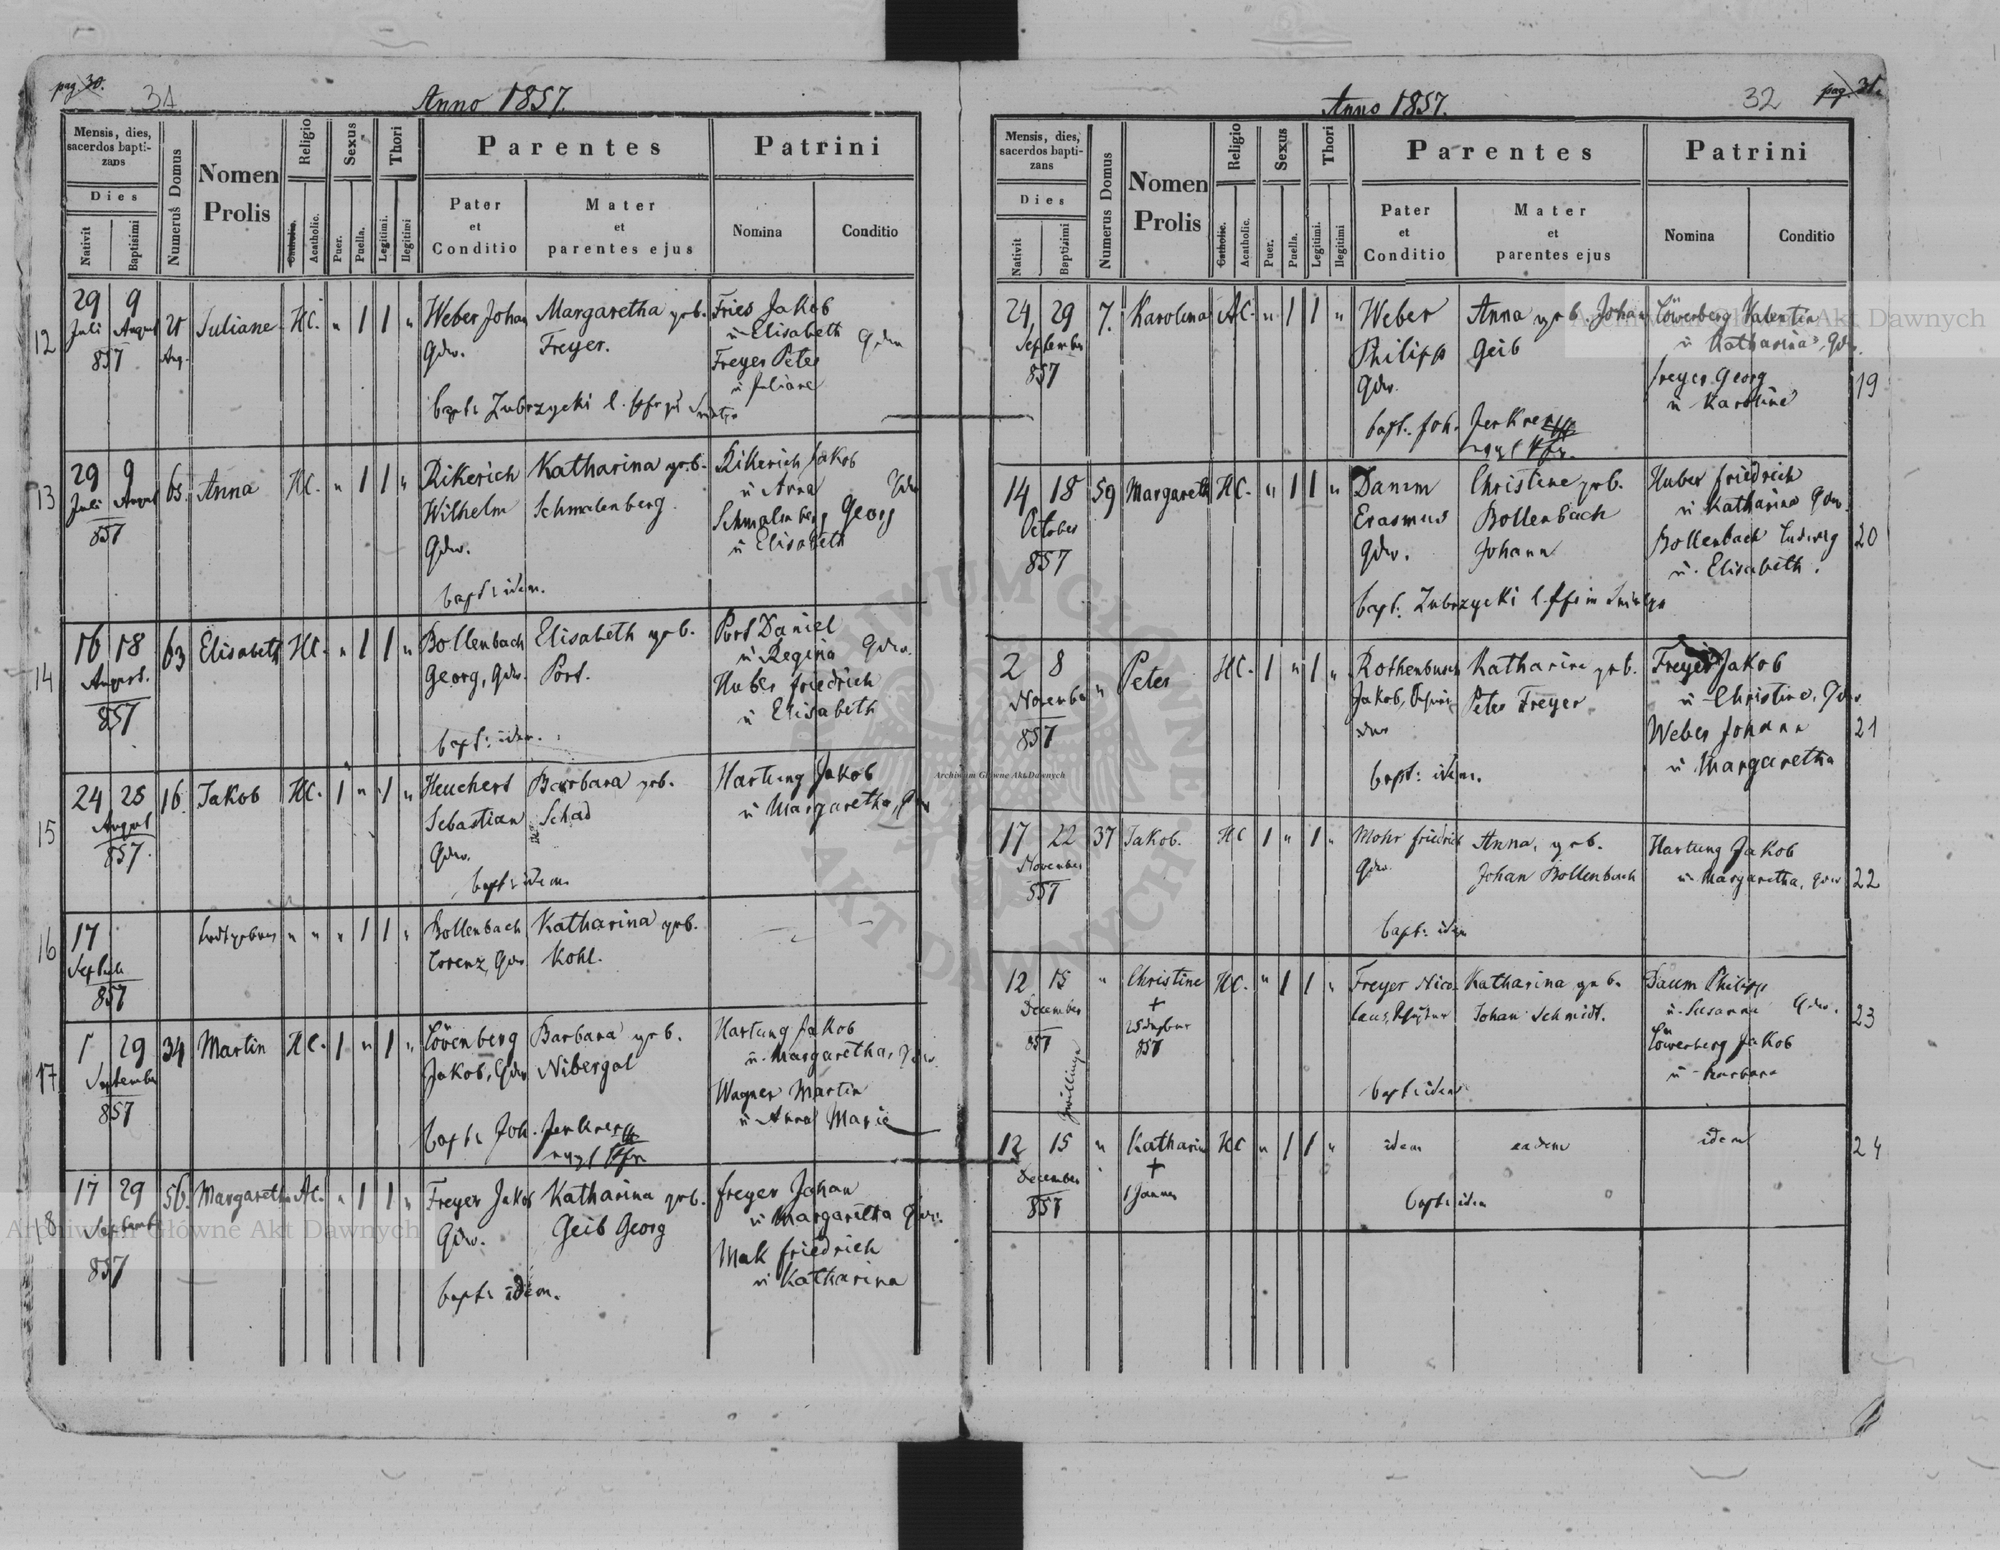 pag. 30.
31
Anno 1857.
Mensis, dies,
sacerdos bapti-
zans
Dies
Nativit
Baptisimi
Numerus Domus
Nomen
Prolis
Religio
Catholic.
Acatholic.
Sexus
Puer.
Puella.
Thori
Legitimi.
Ilegitimi
Parentes
Pater
et
Conditio
Mater
et
parentes ejus
Patrini
Nomina
Conditio
12
29 9
Juli August
857
Juliane
HC. " 1 1 "
Weber Johan
Gdw.
Margaretha geb.
Freyer.
Fries Jakob
u Elisabeth
Freyer Peter
u Juliane
bapt: Zubrzycki
13
29 9
Juli August
857
65. Anna HC. " 1 1 "
Rikerich
Wilhelm
Gdw.
Katharina geb.
Schmalenberg
Rikerich Jakob
u Anna
Schmalenberg Georg
u Elisabeth
bapt: idem.
14
16 18
August.
857
63 Elisabeth HC. " 1 1 "
Bollenbach
Georg, Gdw.
Elisabeth geb.
Port.
Port Daniel
u Regina Gdw.
Huber friedrich
u Elisabeth
bapt: idem.
15
24 25
August
857.
16 Jakob HC. 1 " 1 "
Heuchert
Sebastian
Gdw.
Barbara geb.
Schad
Hartung Jakob
u Margaretha, Gdw
bapt: idem.
16
17
Septemb
857
Todtgeboren " " " 1 1 "
Bollenbach
Lorenz, Gdw
Katharina geb.
Kohl.
17
1 29
September
857
34 Martin HC. 1 " 1 "
Lövenberg
Jakob, Gdw
Barbara geb.
Nibergal
Hartung Jakob
u. Margaretha, Gdw
Wagner Martin
u Anna Marie
bapt: Joh. Jenkner
Pfr
18
17 29
Septemb
857
56. Margaretha AC. " 1 1 "
Freyer Jakob
Gdw.
Katharina geb.
Geib Georg
freyer Johan
u Margaretha Gdw.
Mak friedrich
u Katharina
bapt: idem.
Anno 1857.
32
pag. 31.
Mensis, dies,
sacerdos bapti-
zans
Dies
Nativit
Baptisimi
Numerus Domus
Nomen
Prolis
Religio
Catholic.
Acatholic.
Sexus
Puer.
Puella.
Thori
Legitimi.
Ilegitimi
Parentes
Pater
et
Conditio
Mater
et
parentes ejus
Patrini
Nomina
Conditio
24, 29
September
857
7. Karolina AC. " 1 1 "
Weber
Philipp
Gdw.
Anna geb. Johan
Geib
Löwenberg Valentin
u Katharina, Gdw.
freyer Georg
u Karoline
19
bapt. Joh. Jenkner
Pfr.
14 18
October
857
59 Margareth HC. " 1 1 "
Damm
Erasmus
Gdw.
Christine geb.
Bollenbach
Johann
Huber friedrich
u Katharina Gdw.
Bollenbach Ludwig
u. Elisabeth.
20
bapt. Zubrzycki
2 8
November
857
" Peter HC. 1 " 1 "
Rothenbusch
Jakob,
Katharine geb.
Peter Freyer
Freyer Jakob
u Christine, Gdw
Weber Johann
u Margaretha
21
bapt: idem.
17 22
November
557
37 Jakob. HC 1 " 1 "
Mohr friedrich
Gdw.
Anna, geb.
Johan Bollenbach
Hartung Jakob
u Margaretha, Gdw
22
bapt: idem
12 15
December
857
Zwillinge
" Christine HC. " 1 1 "
+
857
Freyer Nico-
laus,
Katharina geb.
Johan Schmidt.
Daum Philipp
u. Susanna Gdw.
Löwenberg Jakob
u Barbara
23
bapt: idem
12 15
December
857
" Katharin HC " 1 1 "
+
1 Januar
idem
eadem
idem
24
bapt: idem
Archiwum Główne Akt Dawnych
Archiwum Główne Akt Dawnych
Archiwum Główne Akt Dawnych
ARCHIWUM GŁÓWNE AKT DAWNYCH